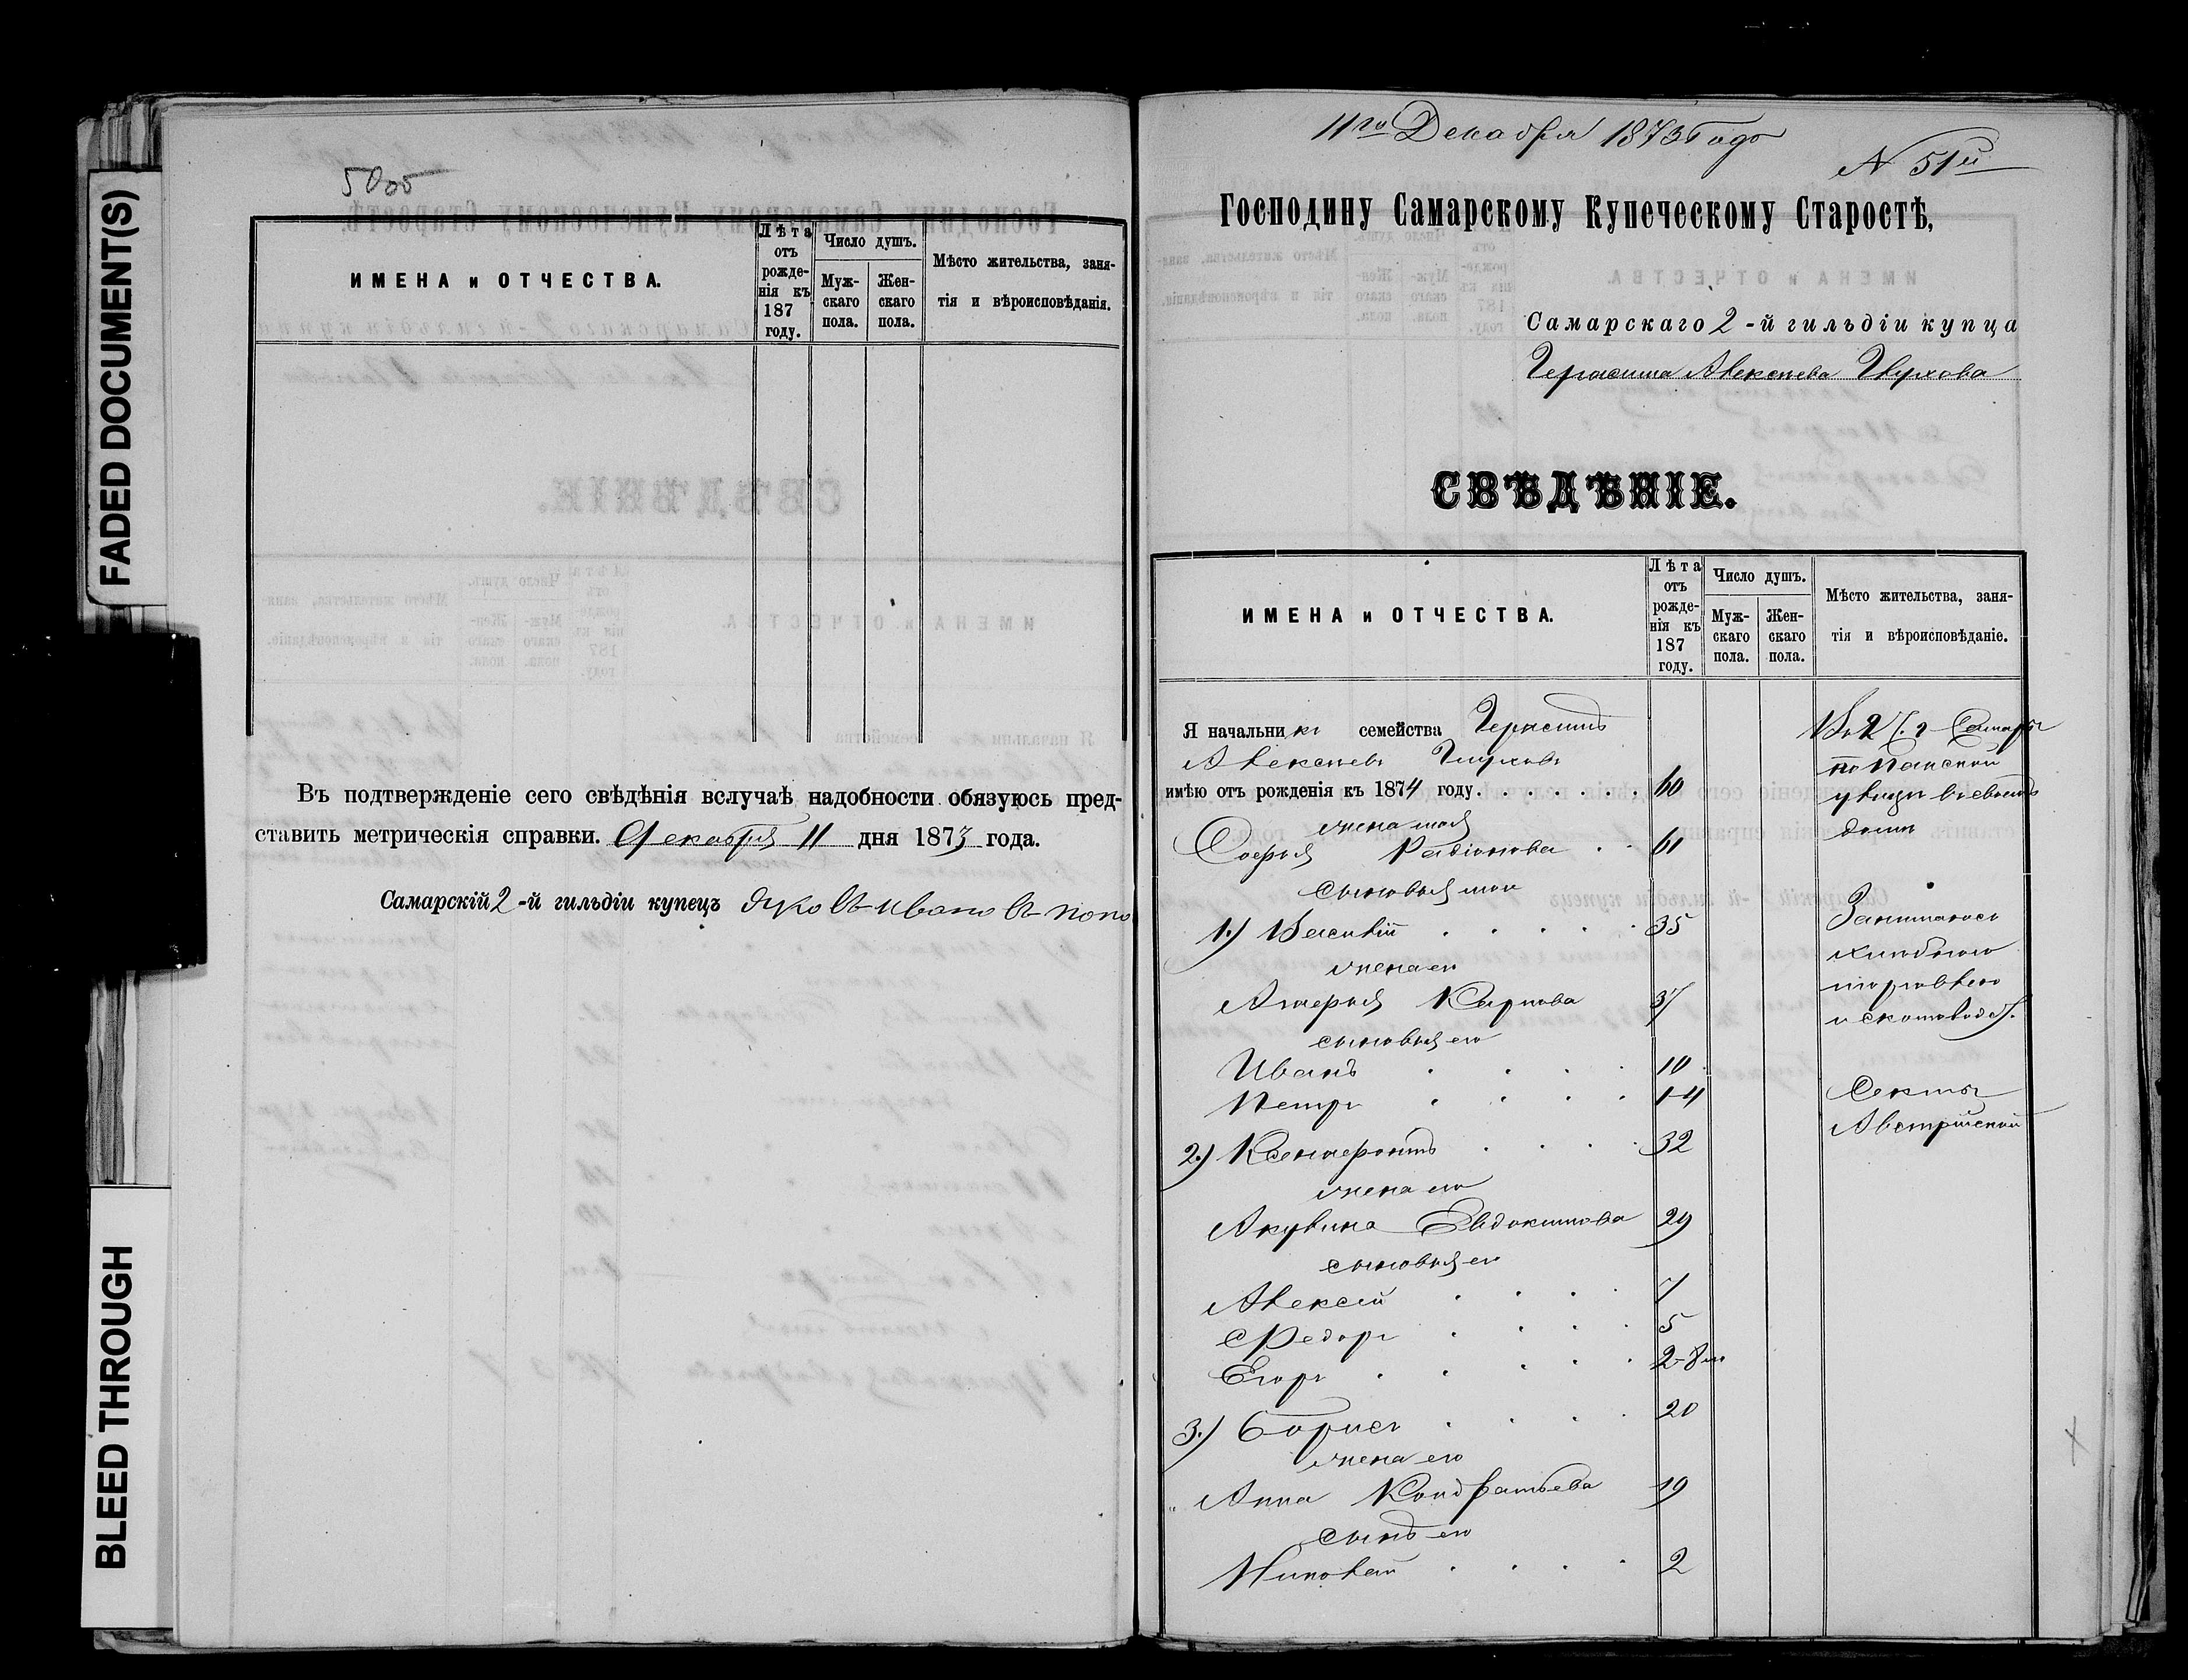 FADED DOCUMENT(S)
BLEED THROUGH
ИМЕНА и ОТЧЕСТВА.
Лѣта отъ рожде-нія къ 187 году.
Число душъ.
Муж-скаго пола.
Жен-скаго пола.
Мѣсто жительства, заня-
тія и вѣроисповѣданія.
Въ подтвержденіе сего свѣдѣнія вслучаѣ надобности обязуюсь пред-
ставить метрическія справки. Декабря 11 дня 1873 года.
Самарскій 2-й гильдіи купецъ Яковъ Ивановъ попо
11го Декабря 1873 Года
N 51й
Господину Самарскому Купеческому Старостѣ,
Самарскаго 2-й гильдіи купца
Герасима Алексѣева
СВѢДѢНІЕ.
ИМЕНА и ОТЧЕСТВА.
Лѣта отъ рожде-нія къ 187 году.
Число душъ.
Муж-скаго пола.
Жен-скаго пола.
Мѣсто жительства, заня-
тія и вѣроисповѣданіе.
Я начальникъ семейства Герасимъ
Алексѣевъ
имѣю отъ рожденія къ 1874 году. 60
жена моя
Софья Радіонова 61
сыновья мои
1.) Василій 35
жена его
Карпова 37
сыновья его
Иванъ 10
Петръ 1-4
2.) Ксенофонтъ 32
жена его
Акулина Евдокимова 29
сыновья его
Алексей 7
Федоръ 5
Егоръ 2-8м
3.) Борисъ 20
жена его
Анна Кондратьева 19
сынъ его
Николай 2
Во 2 Ч. г. Самары
по Панской
улицѣ въ своемъ
домѣ
Занимаюсь
хлѣбною
торговлею
и скотовод.
Секты
Австрійской